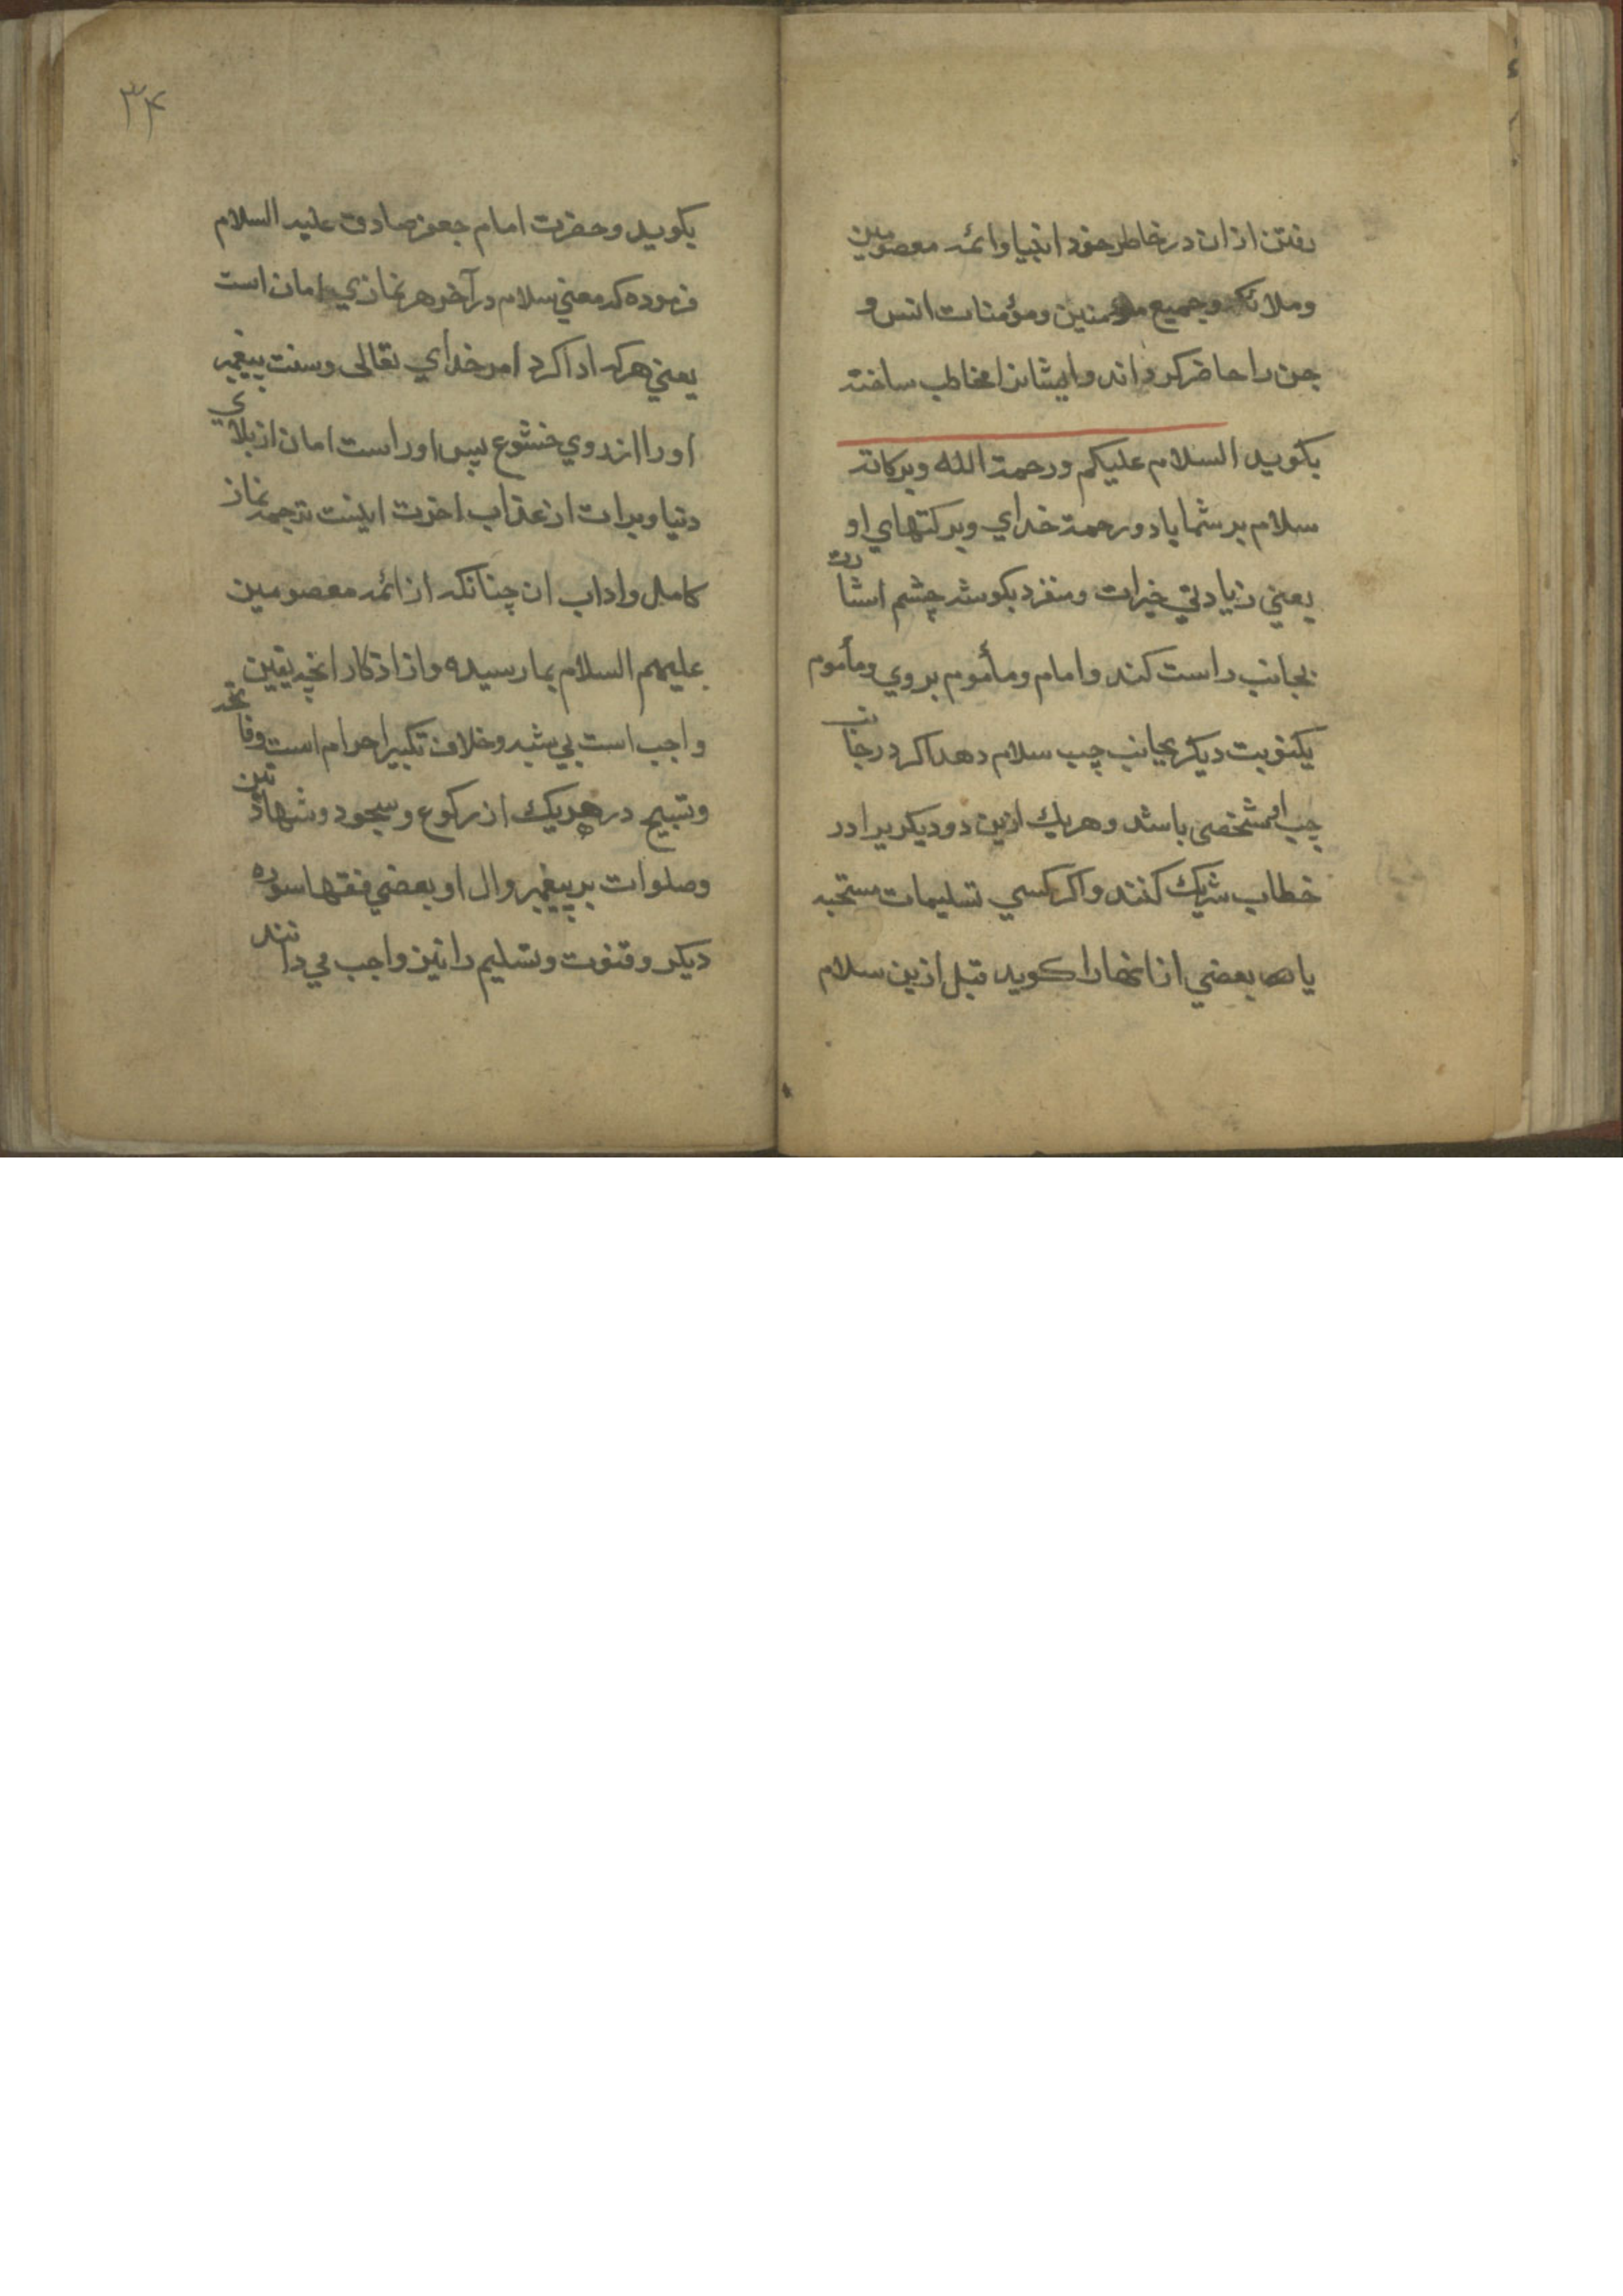 رفتن ازان در خاطر خود انبیا وائمه معصومین
وملائکه وجمیع مؤمنین ومؤمنات انس و
جن را حاضر کرداند وایشانرا مخاطب ساخته
بکوید السلام علیکم ورحمة الله وبرکاته
سلام بر شما باد ورحمة خدای وبرکتهای او
یعنی زیادتی خیرات ومنفرد بکوشه چشم اشارت
بجانب راست کند وامام ومأموم بروی ومأموم
یکنوبت دیکر بجانب چپ سلام دهد اکر در جانب
چپ او شخصی باشد وهریك ازین دو دیکریرا در
خطاب شریك کنند واکر کسی تسلیمات مستحبه
یا بعضی از انها را کوید قبل ازین سلام
۳۴
بکوید وحضرت امام جعفر صادق علیه السلام
فرموده که معنی سلام در آخر هر نمازی امان است
یعنی هرکه ادا کرد امر خدای تعالی وسنت پیغمبر
اورا از روی خشوع پس اوراست امان از بلای
دنیا وبرات از عذاب اخرت اینست ترجمه نماز
کامل واداب ان چنانکه از ائمه معصومین
علیهم السلام بما رسیده واز اذکار انچه یقین
واجب است بی شبه وخلاف تکبیر احرام است وفاتحه
وتسبیح در هریك از رکوع وسجود وشهادتین
وصلوات بر پیغمبر وال او وبعضی فقها سوره
دیکر وقنوت وتسلیم را نیز واجب می دانند